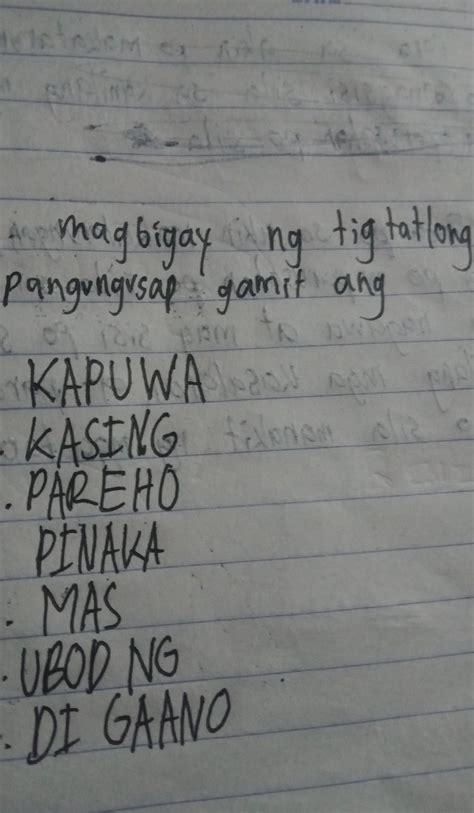 magbigay ng tig tatlong
pangungusap gamit ang
KAPUWA
. KASING
. PAREHO
PINAKA
. MAS
. UBOD NG
. DI GAANO